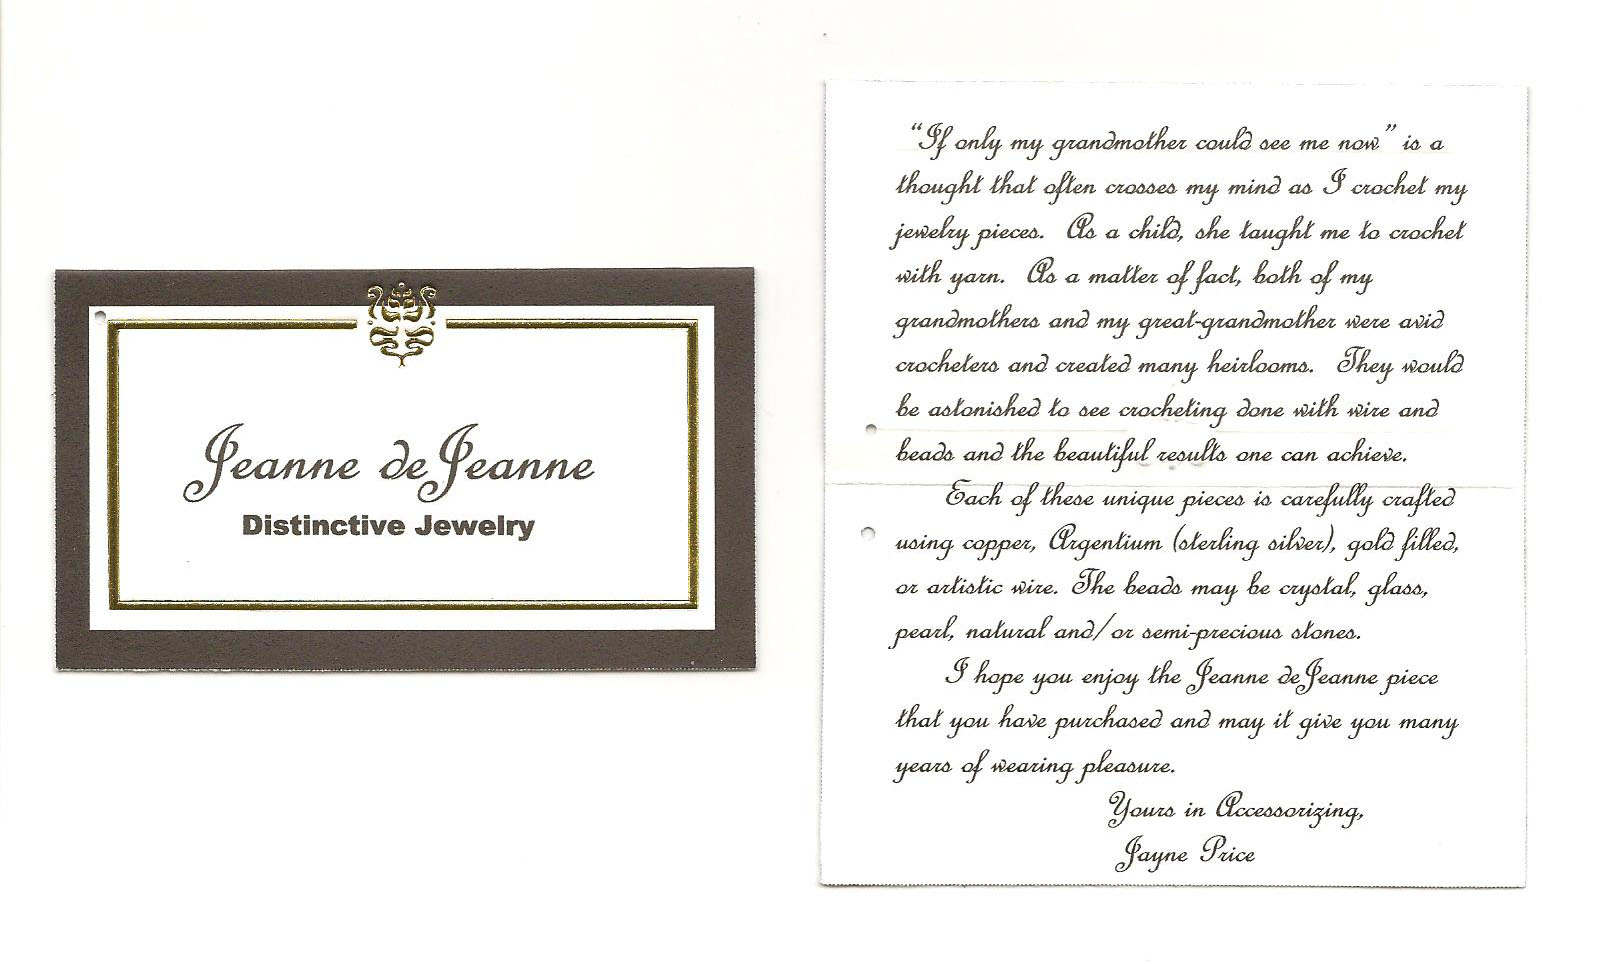 Jeanne deJeanne
Distinctive Jewelry
“If only my grandmother could see me now” is a
thought that often crosses my mind as I crochet my
jewelry pieces. As a child, she taught me to crochet
with yarn. As a matter of fact, both of my
grandmothers and my great-grandmother were avid
crocheters and created many heirlooms. They would
be astonished to see crocheting done with wire and
beads and the beautiful results one can achieve.
Each of these unique pieces is carefully crafted
using copper, Argentium (sterling silver), gold filled,
or artistic wire. The beads may be crystal, glass,
pearl, natural and/or semi-precious stones.
I hope you enjoy the Jeanne deJeanne piece
that you have purchased and may it give you many
years of wearing pleasure.
Yours in Accessorizing,
Jayne Price